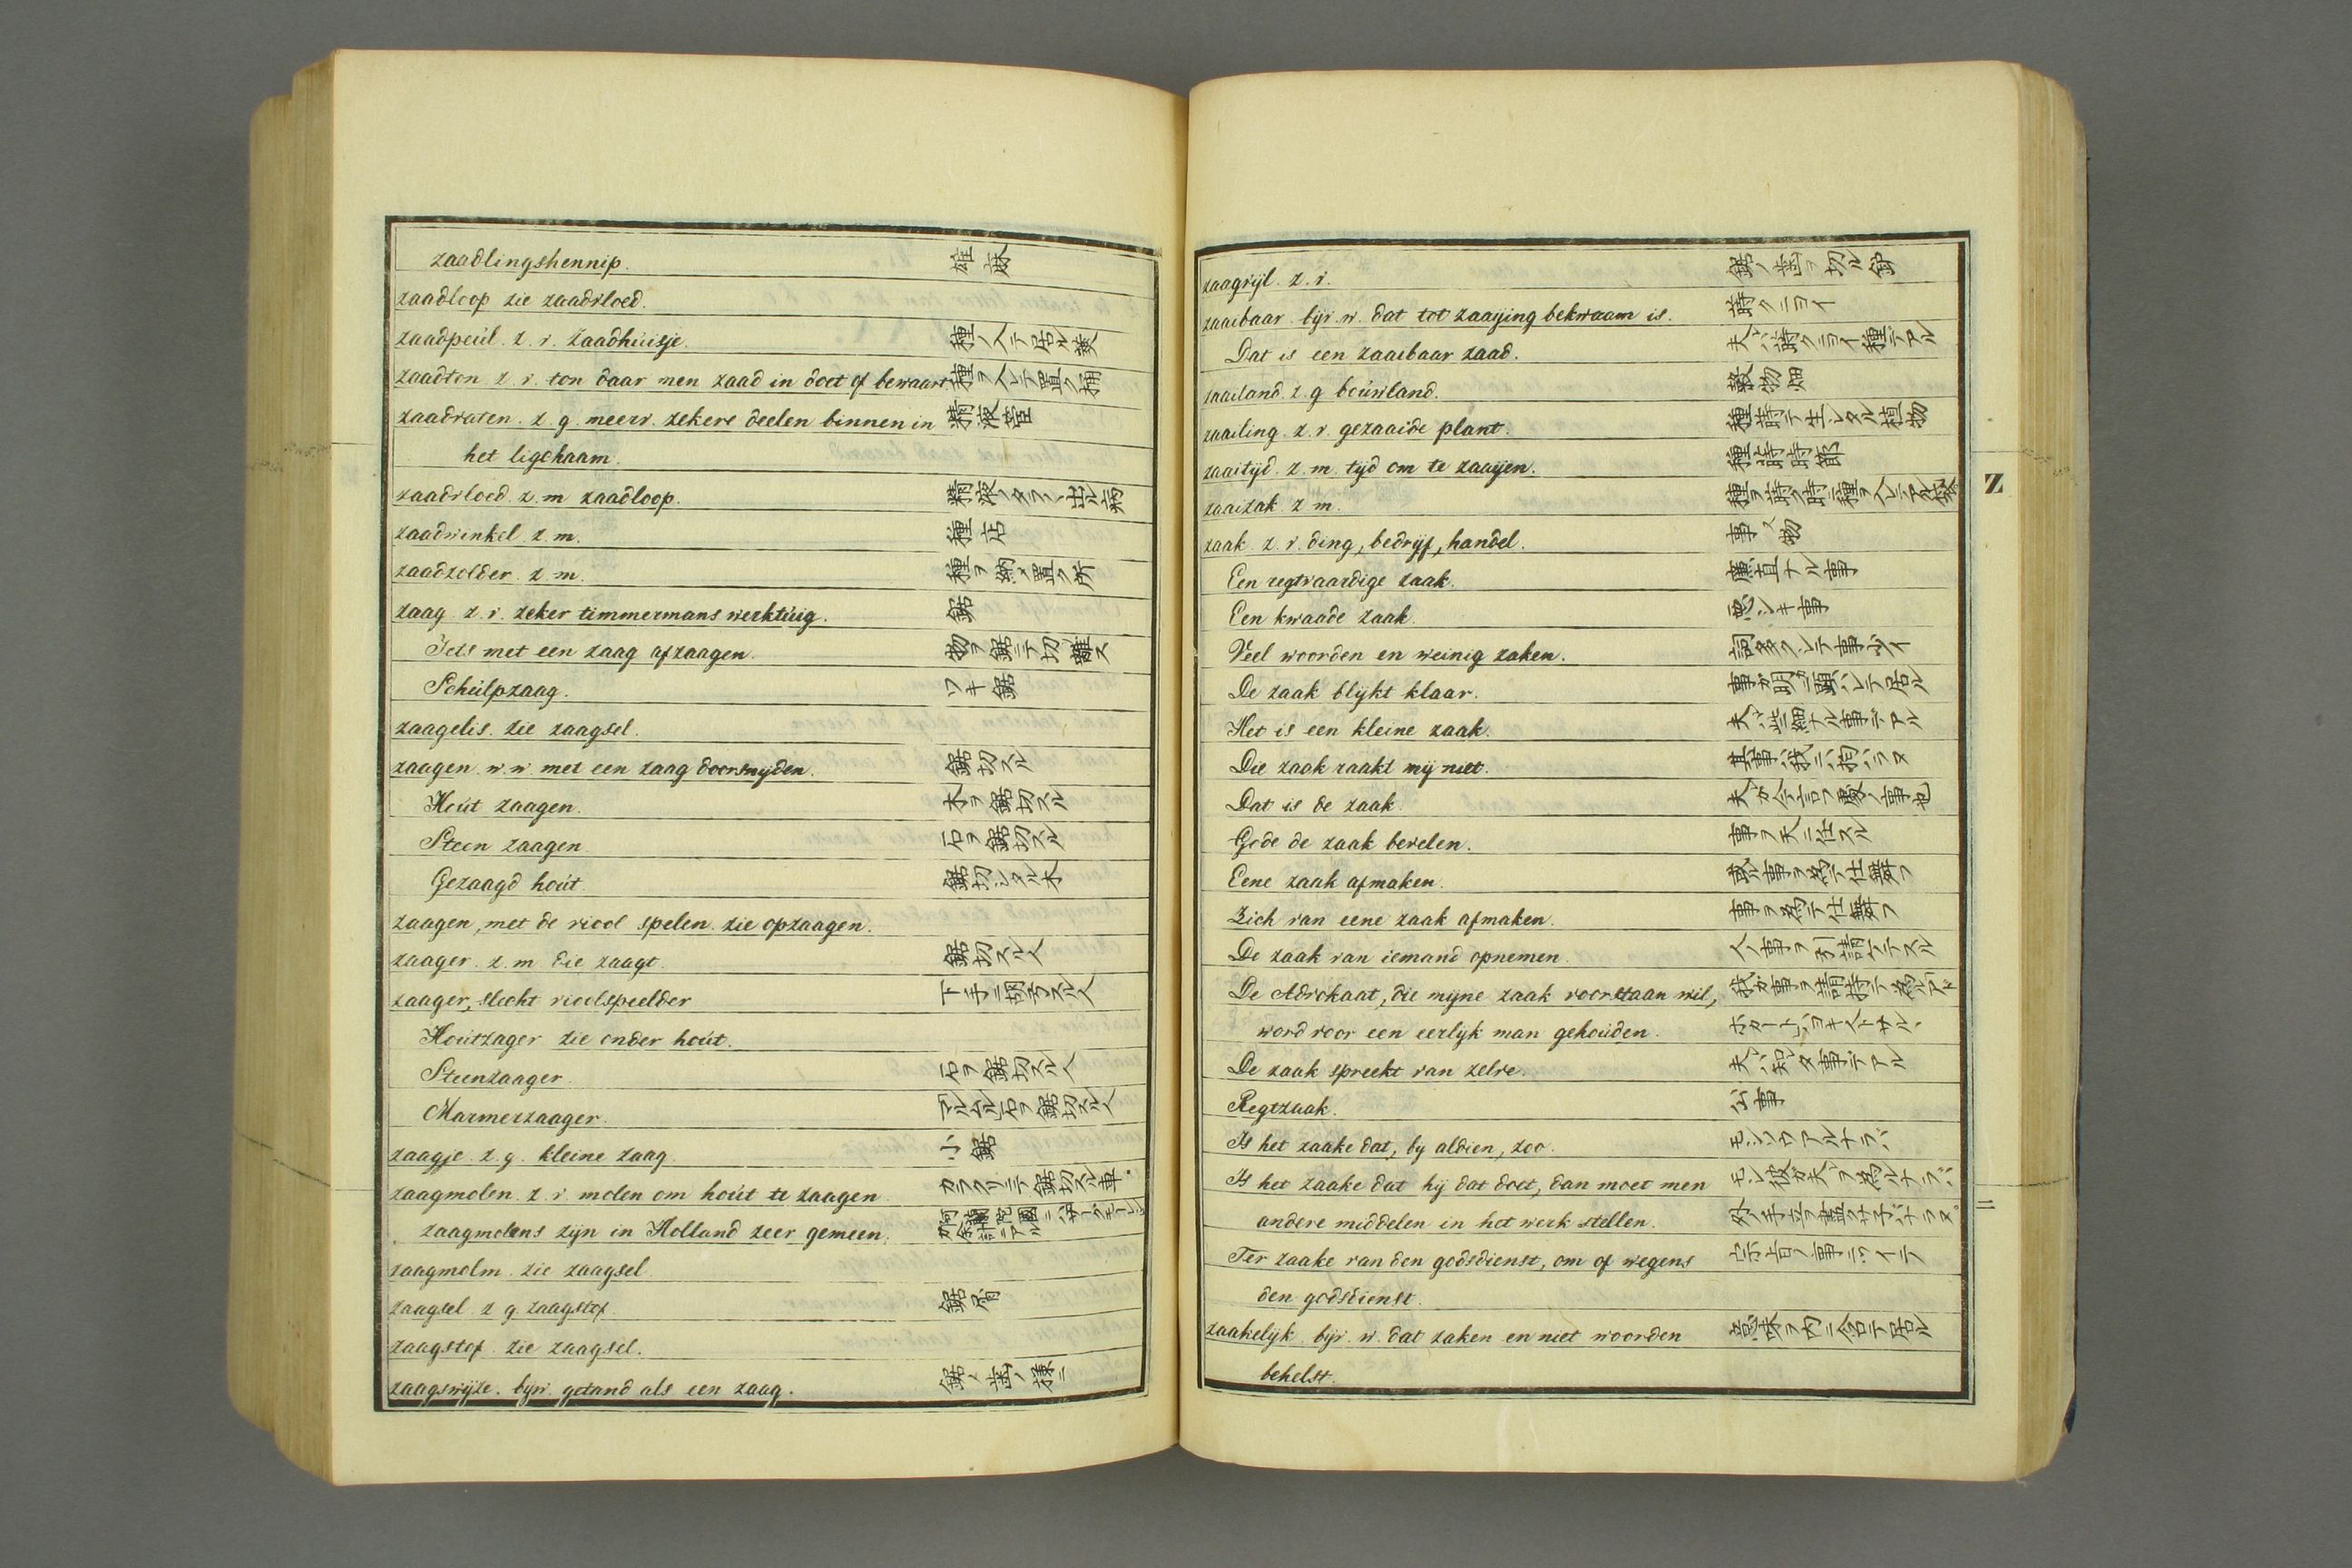 zaadlingshennip. 雄麻
zaadloop zie zaadvloed.
zaadpeul. z. v. zaadhuisje. 種ノ入テ居ル莢
zaadton z. v. ton daar men zaad in doet of bewaart 種ヲ入レテ置ク桶
zaadvaten. z. g. meerv. zekere deelen binnen in 精液管
het ligchaam.
zaadvloed. z. m zaadloop. 精液ノタラ〱出ル病
zaadwinkel. z. m. 種店
zaadzolder. z. m. 種ヲ納メ置ク所
zaag. z. v. zeker timmermans werktuig. 鋸
Iets met een zaag afzaagen. 物ヲ鋸ニテ切離ス
Schulpzaag. ワキ鋸
zaagelis. zie zaagsel.
zaagen. w. w. met een zaag doorsnyden. 鋸切スル
Hout zaagen. 木ヲ鋸切スル
Steen zaagen. 石ヲ鋸切スル
Gezaagd hout. 鋸切シタル木
zaagen, met de viool spelen. zie opzaagen.
zaager. z. m. die zaagt. 鋸切スル人
zaager, slecht vioolspeelder 下手ニ胡弓スル人
Houtzager zie onder hout.
Steenzaager. 石ヲ鋸切スル人
Marmerzaager. マルムル石ヲ鋸切スル人
zaagje. z. g. kleine zaag. 小鋸
zaagmolen. z. v. molen om hout te zaagen. カラクリニテ鋸切スル車.
zaagmolens zijn in Holland zeer gemeen. 阿蘭陀國ニハザーグモーレンガ余計ニアル
zaagmolm. zie zaagsel.
zaagsel. z. g. zaagstof. 鋸屑
zaagstof. zie zaagsel.
zaagswijze. bijw. getand als een zaag. 鋸ノ歯ノ様ニ
zaagvijl. z. v. 鋸ノ歯ヲ切ル鈩
zaaibaar. bijv. w. dat tot zaaijing bekwaam is. 蒔クニヨイ
Dat is een zaaibaar zaad. 夫ハ蒔クニヨイ種デアル
zaailand. z. g. bouwland. 穀物畑
zaailing. z. v. gezaaide plant. 種蒔テ生シタル植物
zaaitijd. z. m. tijd om te zaaijen. 種蒔時節
zaaizak. z. m. 種ヲ蒔ク時ニ種ヲ入レテアル袋
zaak. z. v. ding, bedrijf, handel. 事又物
Een regtvaardige zaak. 廉直ナル事
Een kwaade zaak. 悪シキ事
Veel woorden en weinig zaken. 詞多クシテ事少イ
De zaak blijkt klaar. 事ガ明ニ顕ハレテ居ル
Het is een kleine zaak. 夫ハ些細ナル事デアル
Die zaak raakt mij niet. 其事ハ我ニ拘ハラヌ
Dat is de zaak. 夫ガ今言フ處ノ事也
Gode de zaak bevelen. 事ヲ天ニ任スル
Eene zaak afmaken. 或ル事ヲ為テ仕舞フ
Zich van eene zaak afmaken. 事ヲ為テ仕舞フ
De zaak van iemand opnemen. 人ノ事ヲ引請テスル
De Advokaat, die mijne zaak voorstaan wil, 我ガ事ヲ請持テ為ルアド
word voor een eerlijk man gehouden. ホカートハヨキ人トサルヽ
De zaak spreekt van zelve. 夫ハ知レタ事デアル
Regtzaak. 公事
Is het zaake dat, by aldien, zoo. モシソウアルナラバ
Is het zaake dat hij dat doet, dan moet men モシ彼ガ夫ヲ為ルナラバ
andere middelen in het werk stellen. 外ノ手立ヲ盡サ子バナラヌ
Ter zaake van den godsdienst, om of wegens 宗旨ノ事ニツイテ
den godsdienst.
zaakelijk. bijv. w. dat zaken en niet woorden 意味ヲ内ニ含テ居ル
behelst.
Z
二